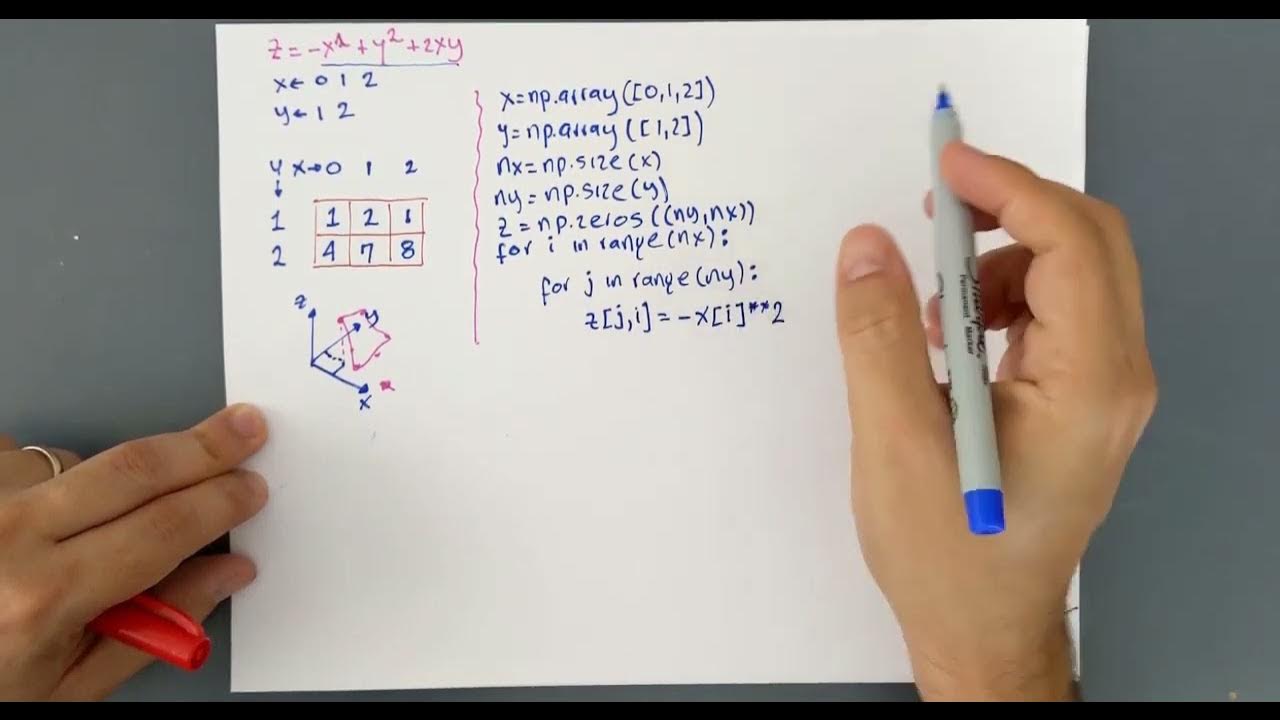 z = -x² + y² + 2xy
x ← 0 1 2
y ← 1 2
y x → 0 1 2
↓
1 1 2 1
2 4 7 8
z
y
x
x=np.array([0,1,2])
y=np.array([1,2])
nx=np.size(x)
ny=np.size(y)
z=np.zeros((ny,nx))
for i in range(nx):
for j in range(ny):
z[j,i]=-x[i]**2
Permanent
Marker